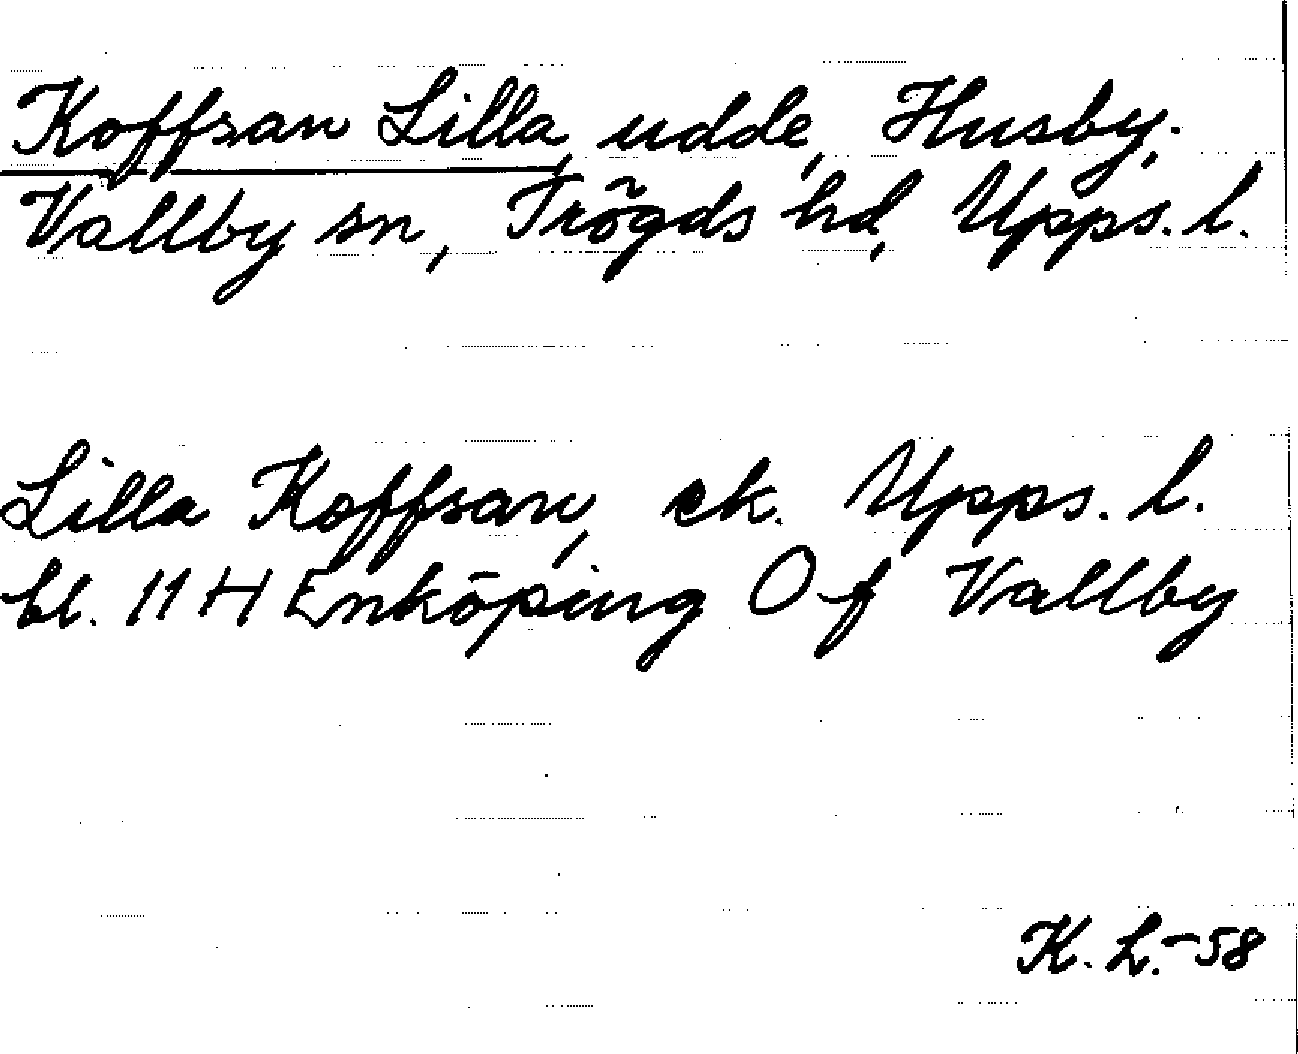 Koffsan Lilla, udde, Husby,
Vallby sn, Trögds hd, Upps. l.
Lilla Koffsan, ek. Upps. l.
bl. 11 H Enköping Of Vallby
K. L. -58